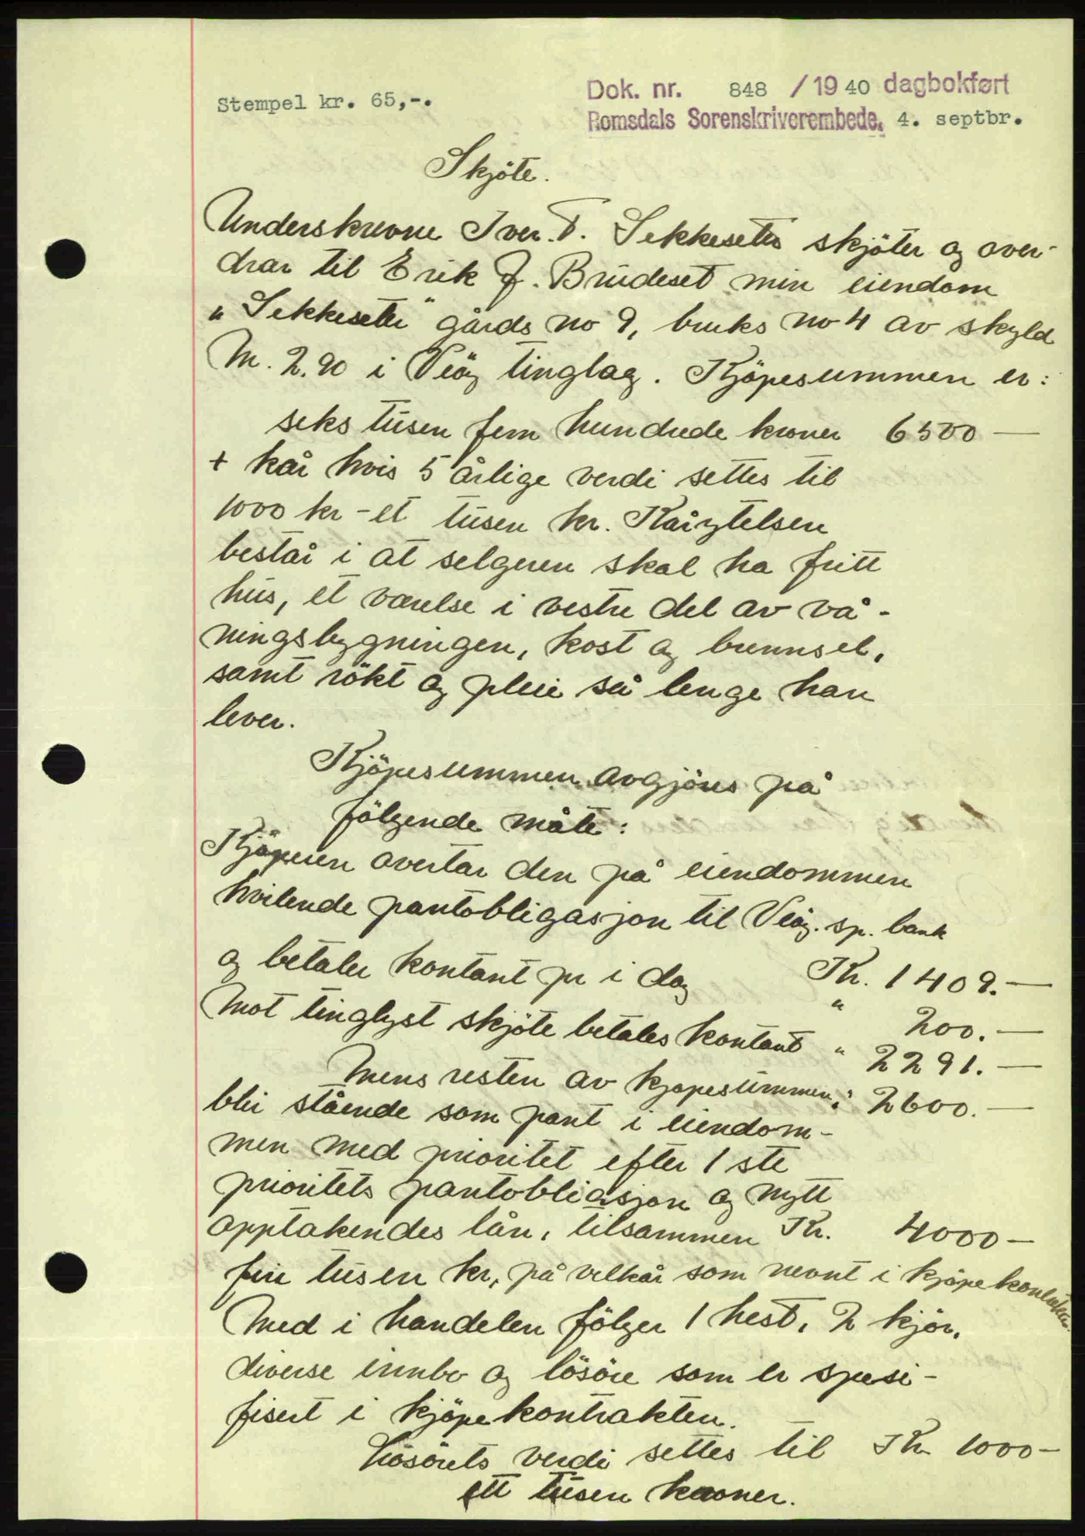 Stempel kr. 65,-.
Dok. nr. 848 /1940 dagbokført
Romsdals Sorenskriverembede, 4. septbr.
Skjöte.
Underskrevne Iver. T. Sekkeseter skjöter og over-
drar til Erik J. Brudeset min eiendom
"Sekkeseter" gårds no 9, bruks no 4 av skyld
M. 2.90 i Veöy tinglag. Kjöpesummen er:
seks tusen fem hundrede kroner 6500 —
+ kår hvis 5 årlige verdi settes til
1000 kr - et tusen kr. Kårytelsen
består i at selgeren skal ha fritt
hus, et værelse i vestre del av vå-
ningsbygningen, kost og brennsel,
samt rökt og pleie så lenge han
lever.
Kjöpesummen avgjöres på
fölgende måte:
Kjöperen overtar den på eiendommen
hvilende pantobligasjon til Veöy. sp. bank
Kr. 1409.—
og betaler kontant pr i dag " 200.—
Mot tinglyst skjöte betales kontant " 2291.—
Mens resten av kjöpesummen, " 2600.—
bli stående som pant i eiendom-
men med prioritet efter 1ste
prioritets pantobliasjon og nytt
opptakendes lån, tilsammen Kr. 4000—
fire tusen kr, på vilkår som nevnt i kjöpekontrakten.
Med i handelen fölger 1 hest, 2 kjör,
diverse innbo og lösöre som er spesi-
fisert i kjöpekontrakten.
Lösörets verdi settes til Kr 1000—
ett tusen kroner.